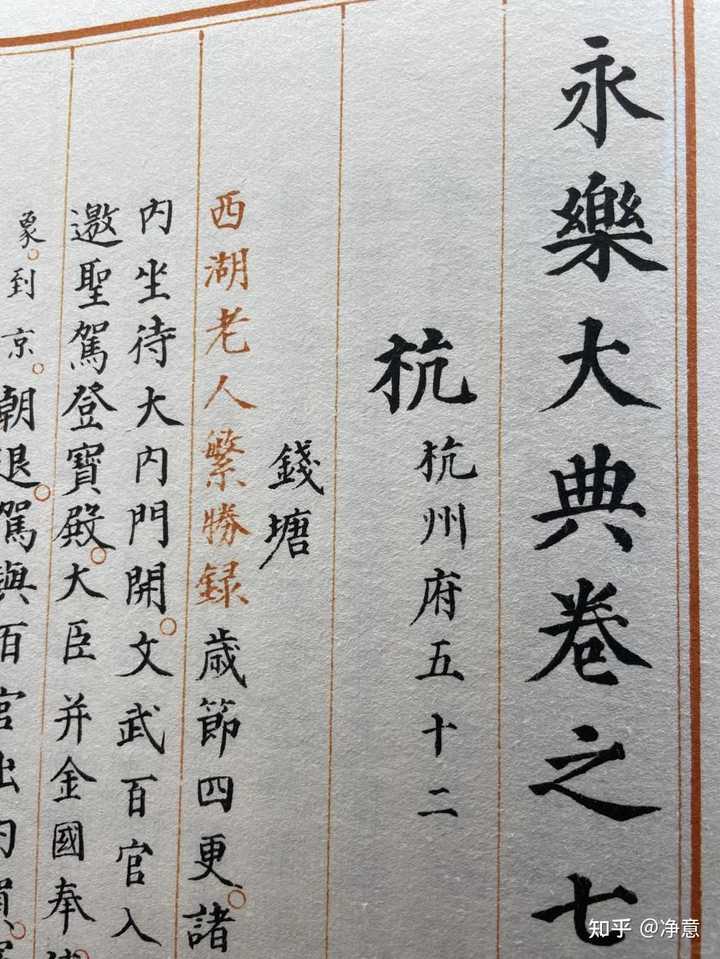 永樂大典卷之七
杭
杭州府五十二
錢塘
西湖老人繁勝録歳節四更。諸
内坐待大内門開。文武百官入
邀聖駕登寶殿。大臣并金國奉
象。到京。朝退。駕與百官出内
知乎 @净意